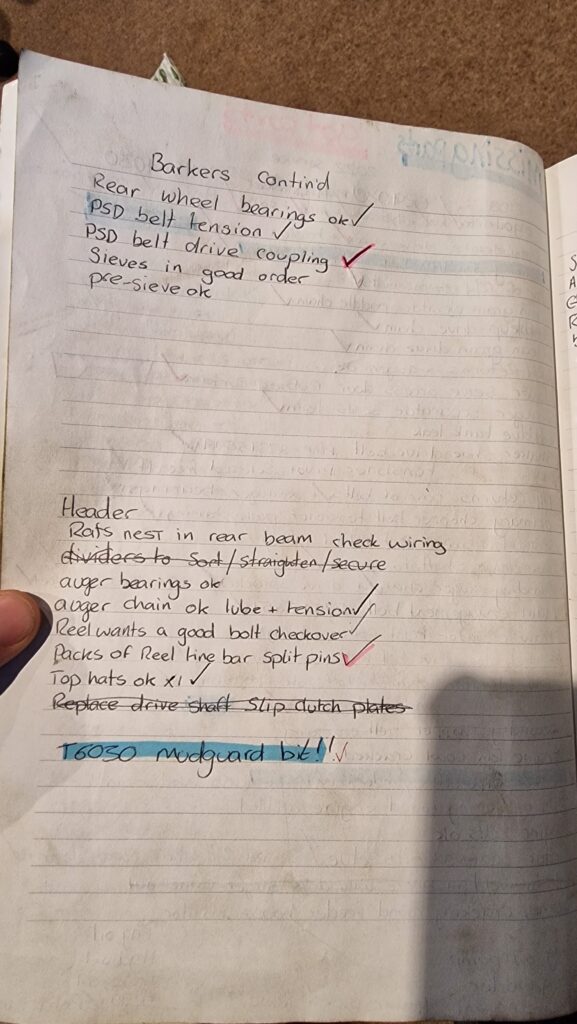 Barkers Contin'd
Rear wheel bearings ok ✓
PSD belt tension ✓
PSD belt drive coupling ✓
Sieves in good order
pre-sieve ok
Header
Rats nest in rear beam check wiring
dividers to Sort/Straighten/secure
auger bearings ok
auger chain ok lube + tension ✓
Reel wants a good bolt checkover ✓
Packs of Reel tine bar split pins ✓
Top hats ok x1 ✓
Replace drive shaft slip clutch plates
T6030 mudguard bit!! ✓